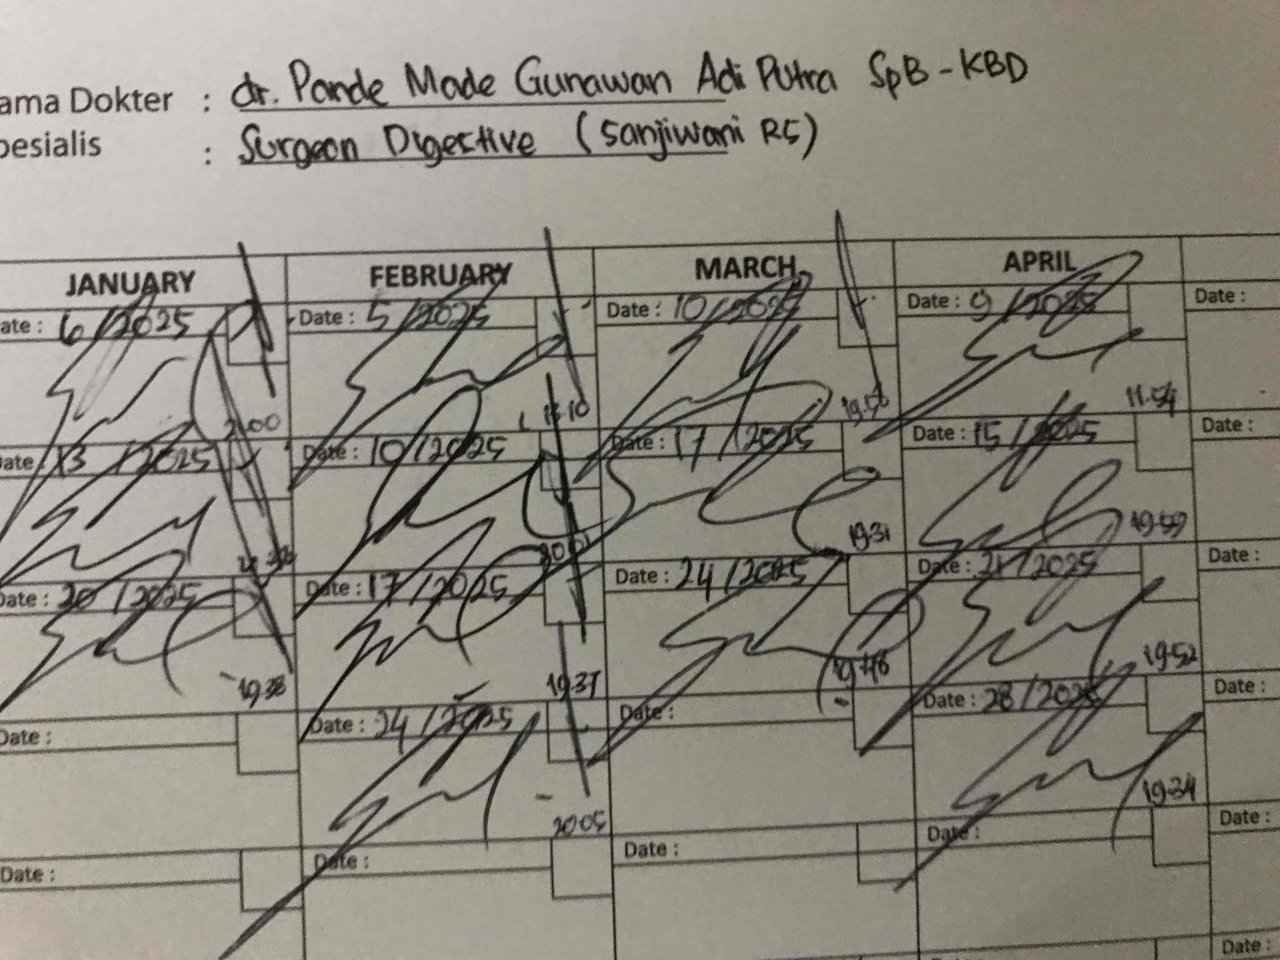 ama Dokter : dr. Pande Made Gunawan Adi Putra SpB-KBD
pesialis : Surgeon Digestive (Sanjiwani RS)
JANUARY FEBRUARY MARCH APRIL
ate : 6 /2025 Date : 5 /2025 Date : 10 /2025 Date : 9 /2025 Date :
21.00 19.56 11.54
ate 13 /2025 Date : 10 /2025 Date : 17 /2025 Date : 15 /2025 Date :
20.01 19.31 19.59
Date : 20 /2025 Date : 17 /2025 Date : 24 /2025 Date : 21 /2025 Date :
19.38 19.37 19.48 19.52
Date : Date : 24 /2025 Date : Date : 28 /2025 Date :
20.05 19.34
Date : Date : Date : Date : Date :
Date :